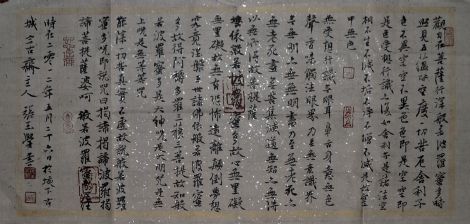 觀自在菩薩行深般若波羅蜜多時
照見五蘊皆空度一切苦厄舍利子
色不異空空不異色色即是空空即
是色受想行識亦復如是舍利子是諸法空
相不生不滅不垢不淨不增不減是故空
中無色
無受想行識無眼耳鼻舌身意無色
聲香味觸法無眼界乃至無意識界
無無明亦無無明盡乃至無老死亦
無老死盡無苦集滅道無智亦無得
以無所得故菩提薩
埵依般若波羅蜜多故心無罣礙
無罣礙故無有恐怖遠離顛倒夢想
究竟涅槃三世諸佛依般若波羅蜜
多故得阿耨多羅三藐三菩提故知般
若波羅蜜多是大神咒是大明咒是無
上咒是無等等咒
能除一切苦真實不虛故說般若波羅
蜜多咒即說咒曰揭諦揭諦波羅揭
諦菩提薩婆呵 般若波羅蜜多心經
時在二零一二年五月二十六日於城子古
城古齋主人張玉書